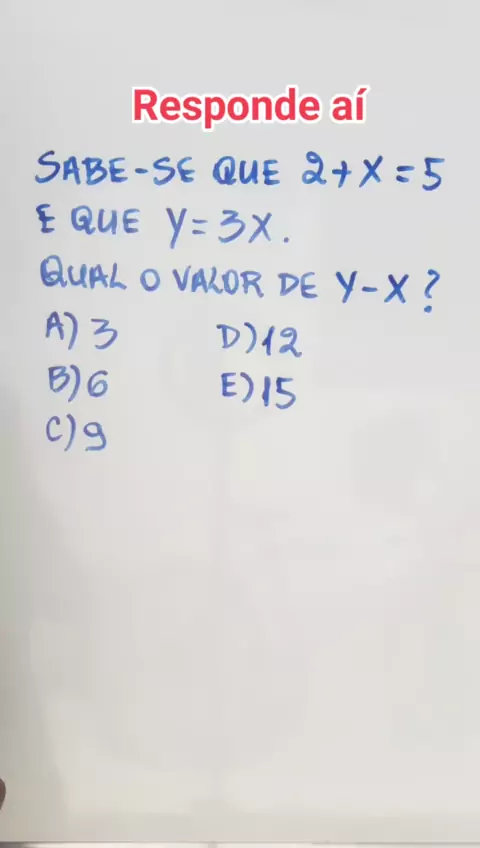 Responde aí
SABE-SE QUE 2+X=5
E QUE Y=3X.
QUAL O VALOR DE Y-X?
A) 3 D) 12
B) 6 E) 15
C) 9